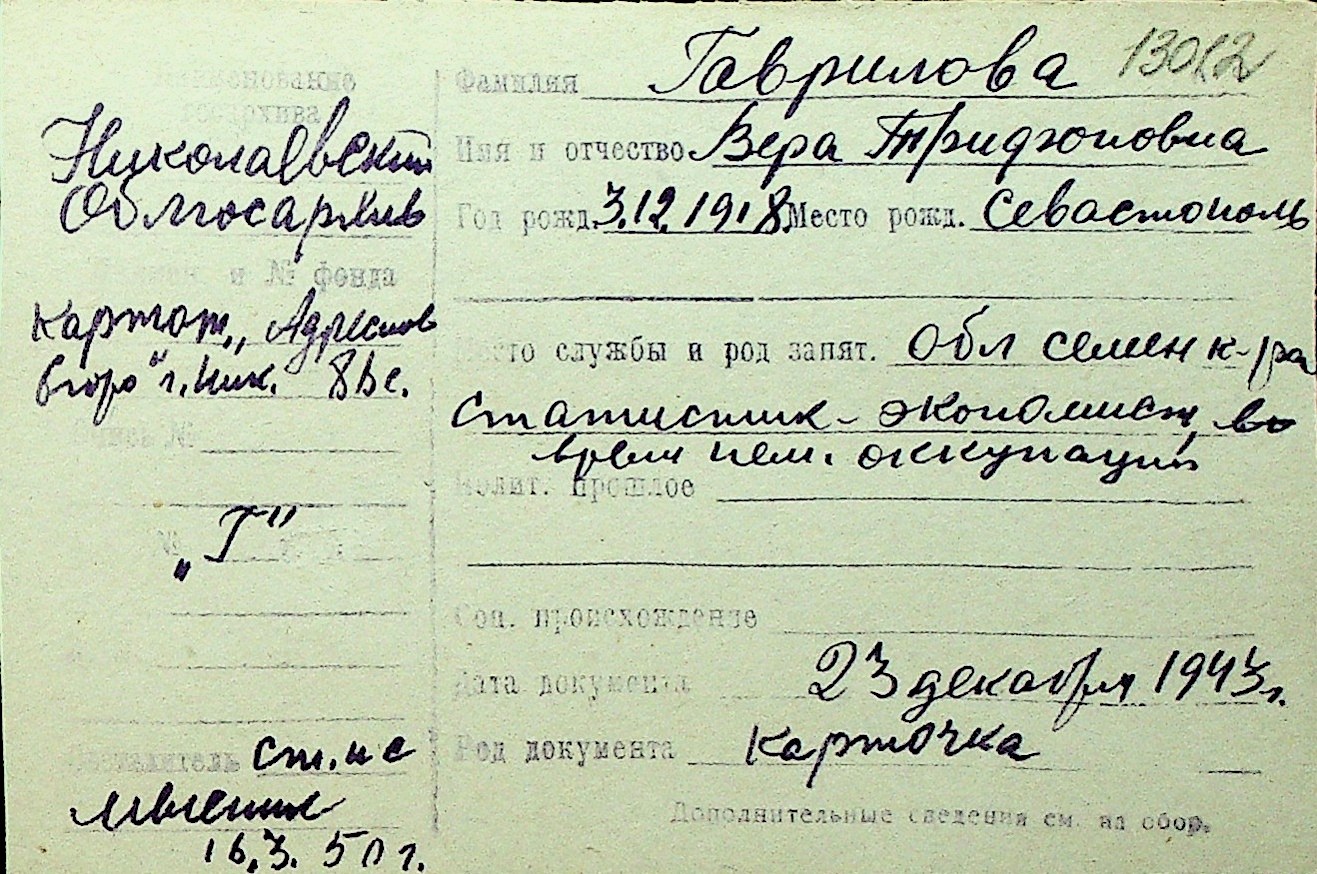 Наименование
госархива
Николаевский
Облгосархив
и № фонда
Картот. „Адресного
бюро" г. Ник.
Опись №
„Г"
Составитель ст. н с
16.3.50 г.
Фамилия Гаврилова 13012
Имя и отчество Вера Трифоновна
Год рожд. 3.12.1918 Место рожд. Севастополь
Место службы и род запят. Обл семен к-ра
статистик - экономист, во
время нем. оккупации
Полит. прошлое
Соц. происхождение
Дата документа 23 декабря 1943 г.
Род документа карточка
Дополнительные сведения см. на обор.